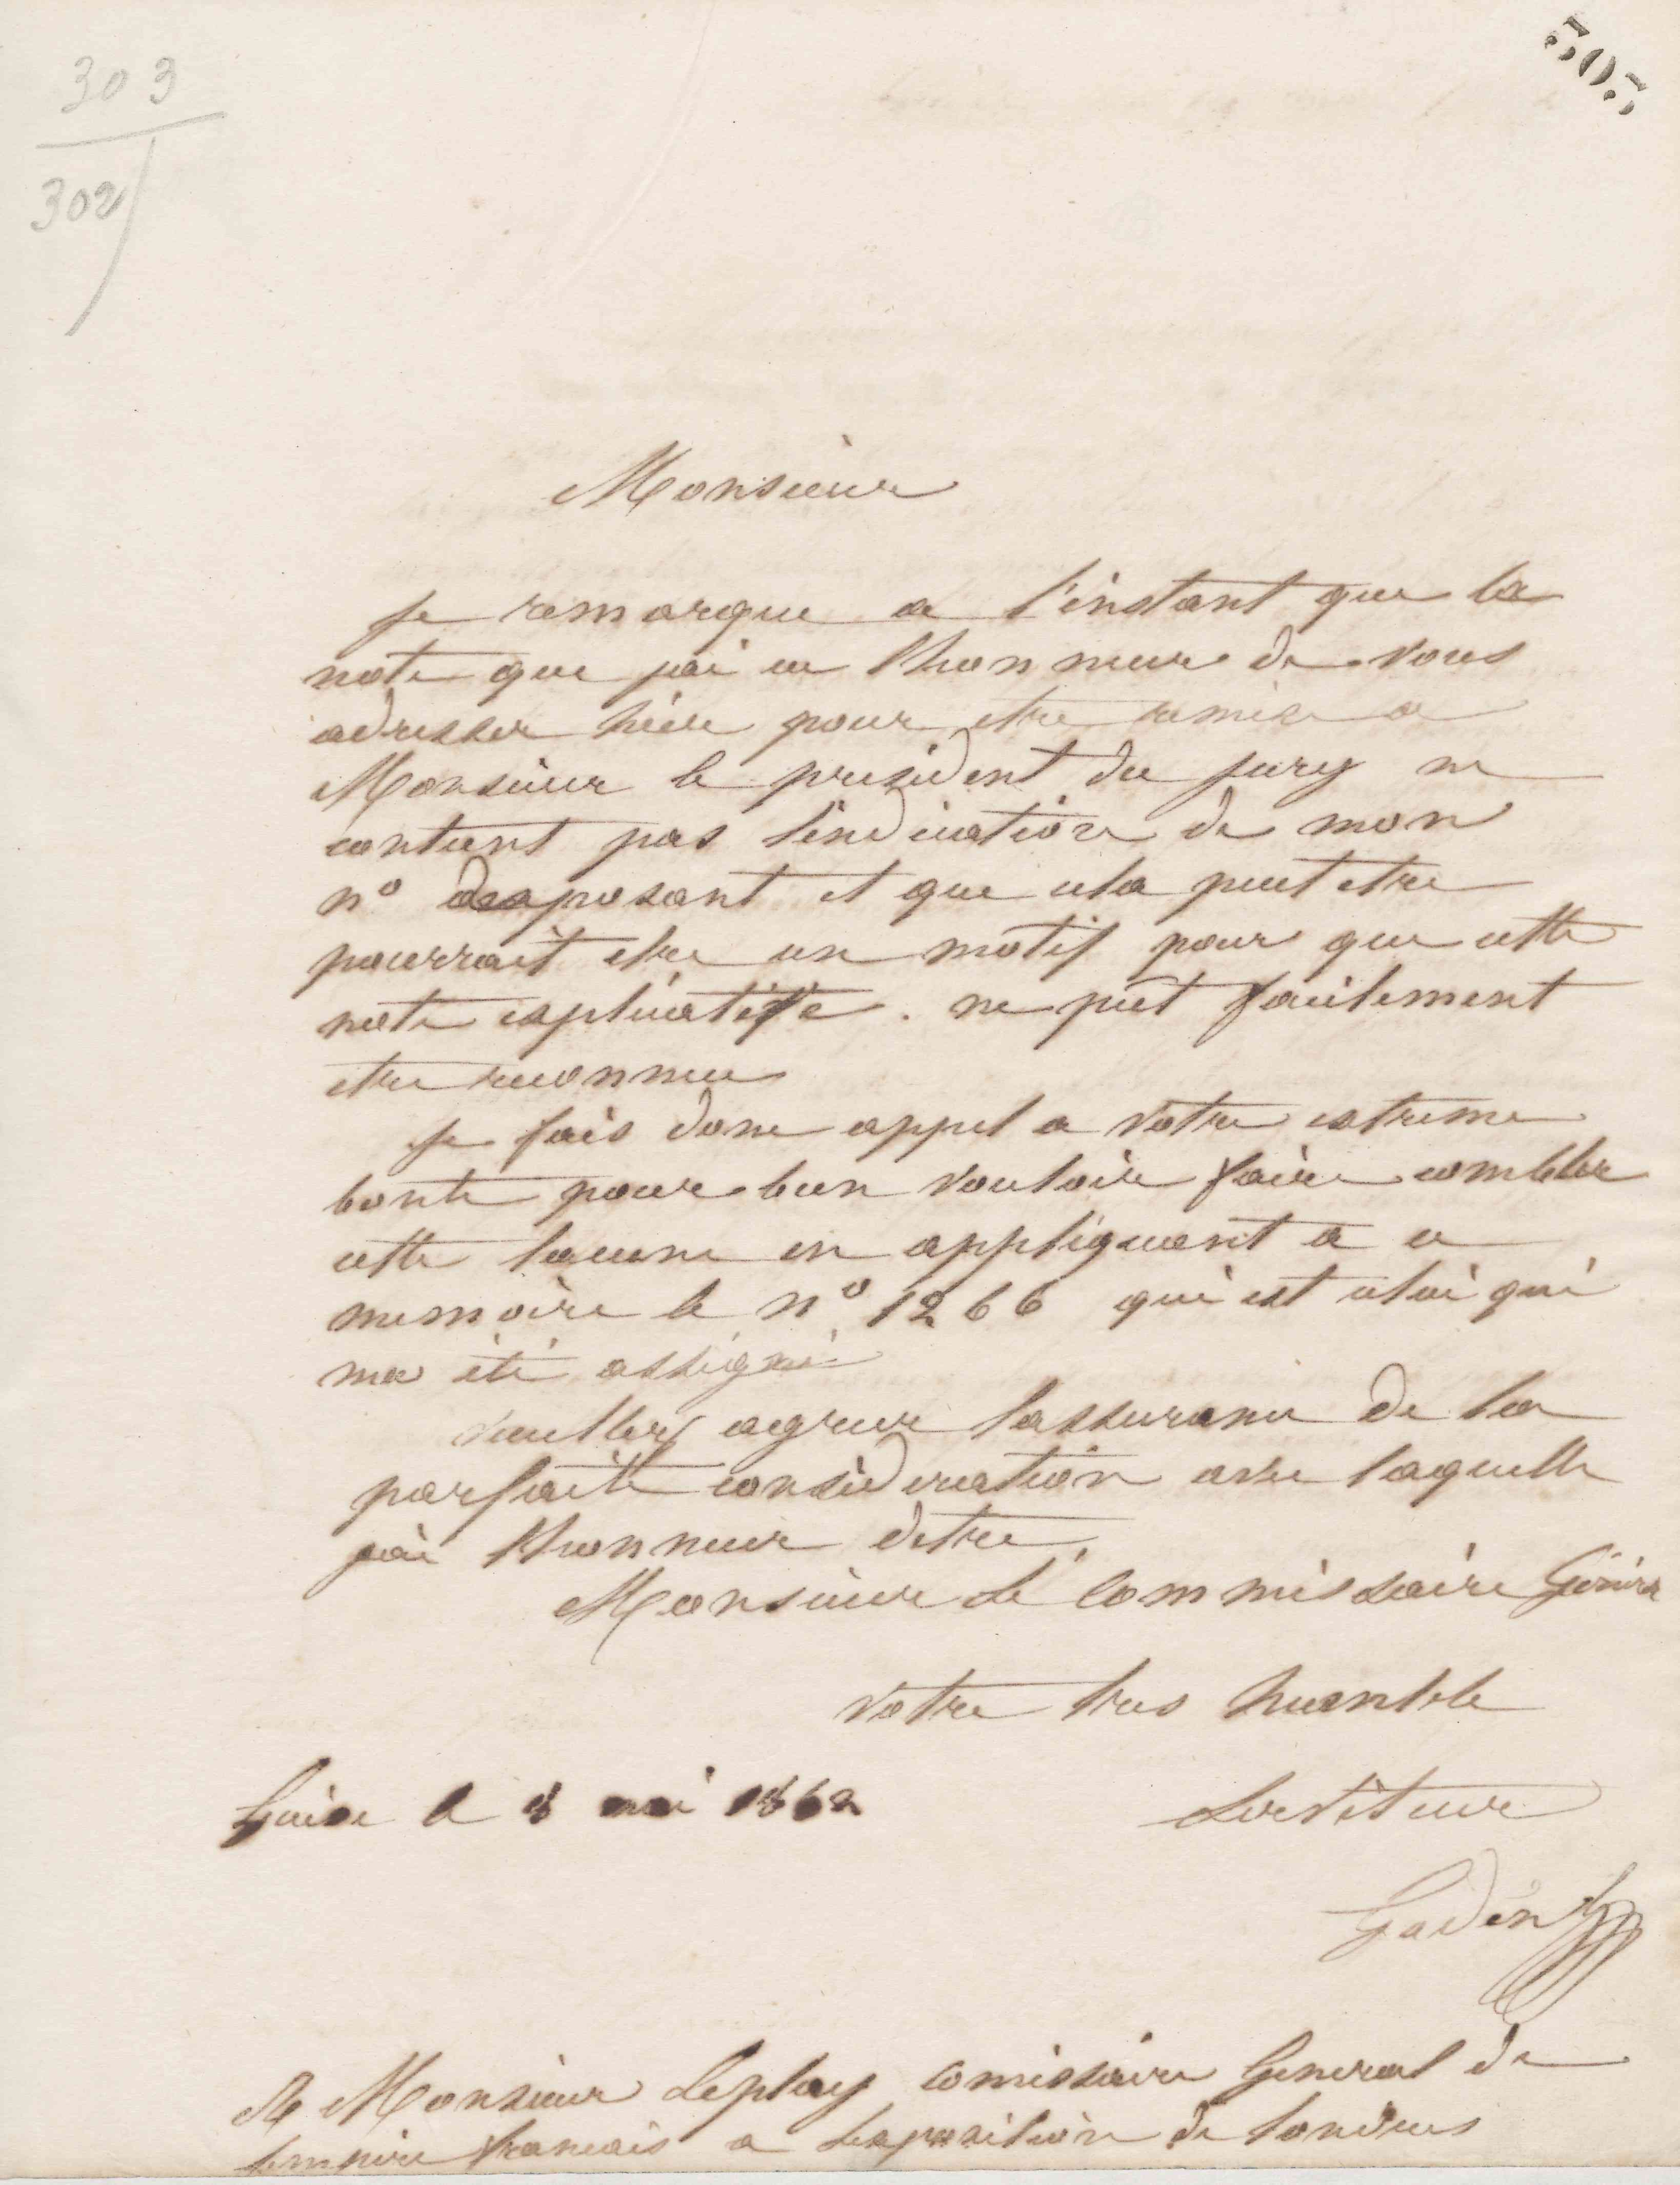 303
302
303
Monsieur
je remarque a l'instant que la
note que jai eu lhonneur de vous
adresser hier pour etre remise a
Monsieur le president du jury ne
contient pas lindication de mon
no dexposant et que cela peut etre
pourrait etre un motif pour que cette
note explicative . ne put facilement
etre reconnue
je fais donc appel a votre extreme
bonte pour bien vouloir faire combler
cette lacune en appliquant a ce
memoire le no 1266 qui est celui qui
ma été assigné
veuillez agreer lassurance de la
parfaite consideration avec laquelle
jai lhonneur detre
Monsieur Le Commissaire Généra
votre tres humble
Serviteur
Guise le 8 mai 1862
Godin
A Monsieur Leplay Comissaire General de
Lempire francais a Lexposition de Londres